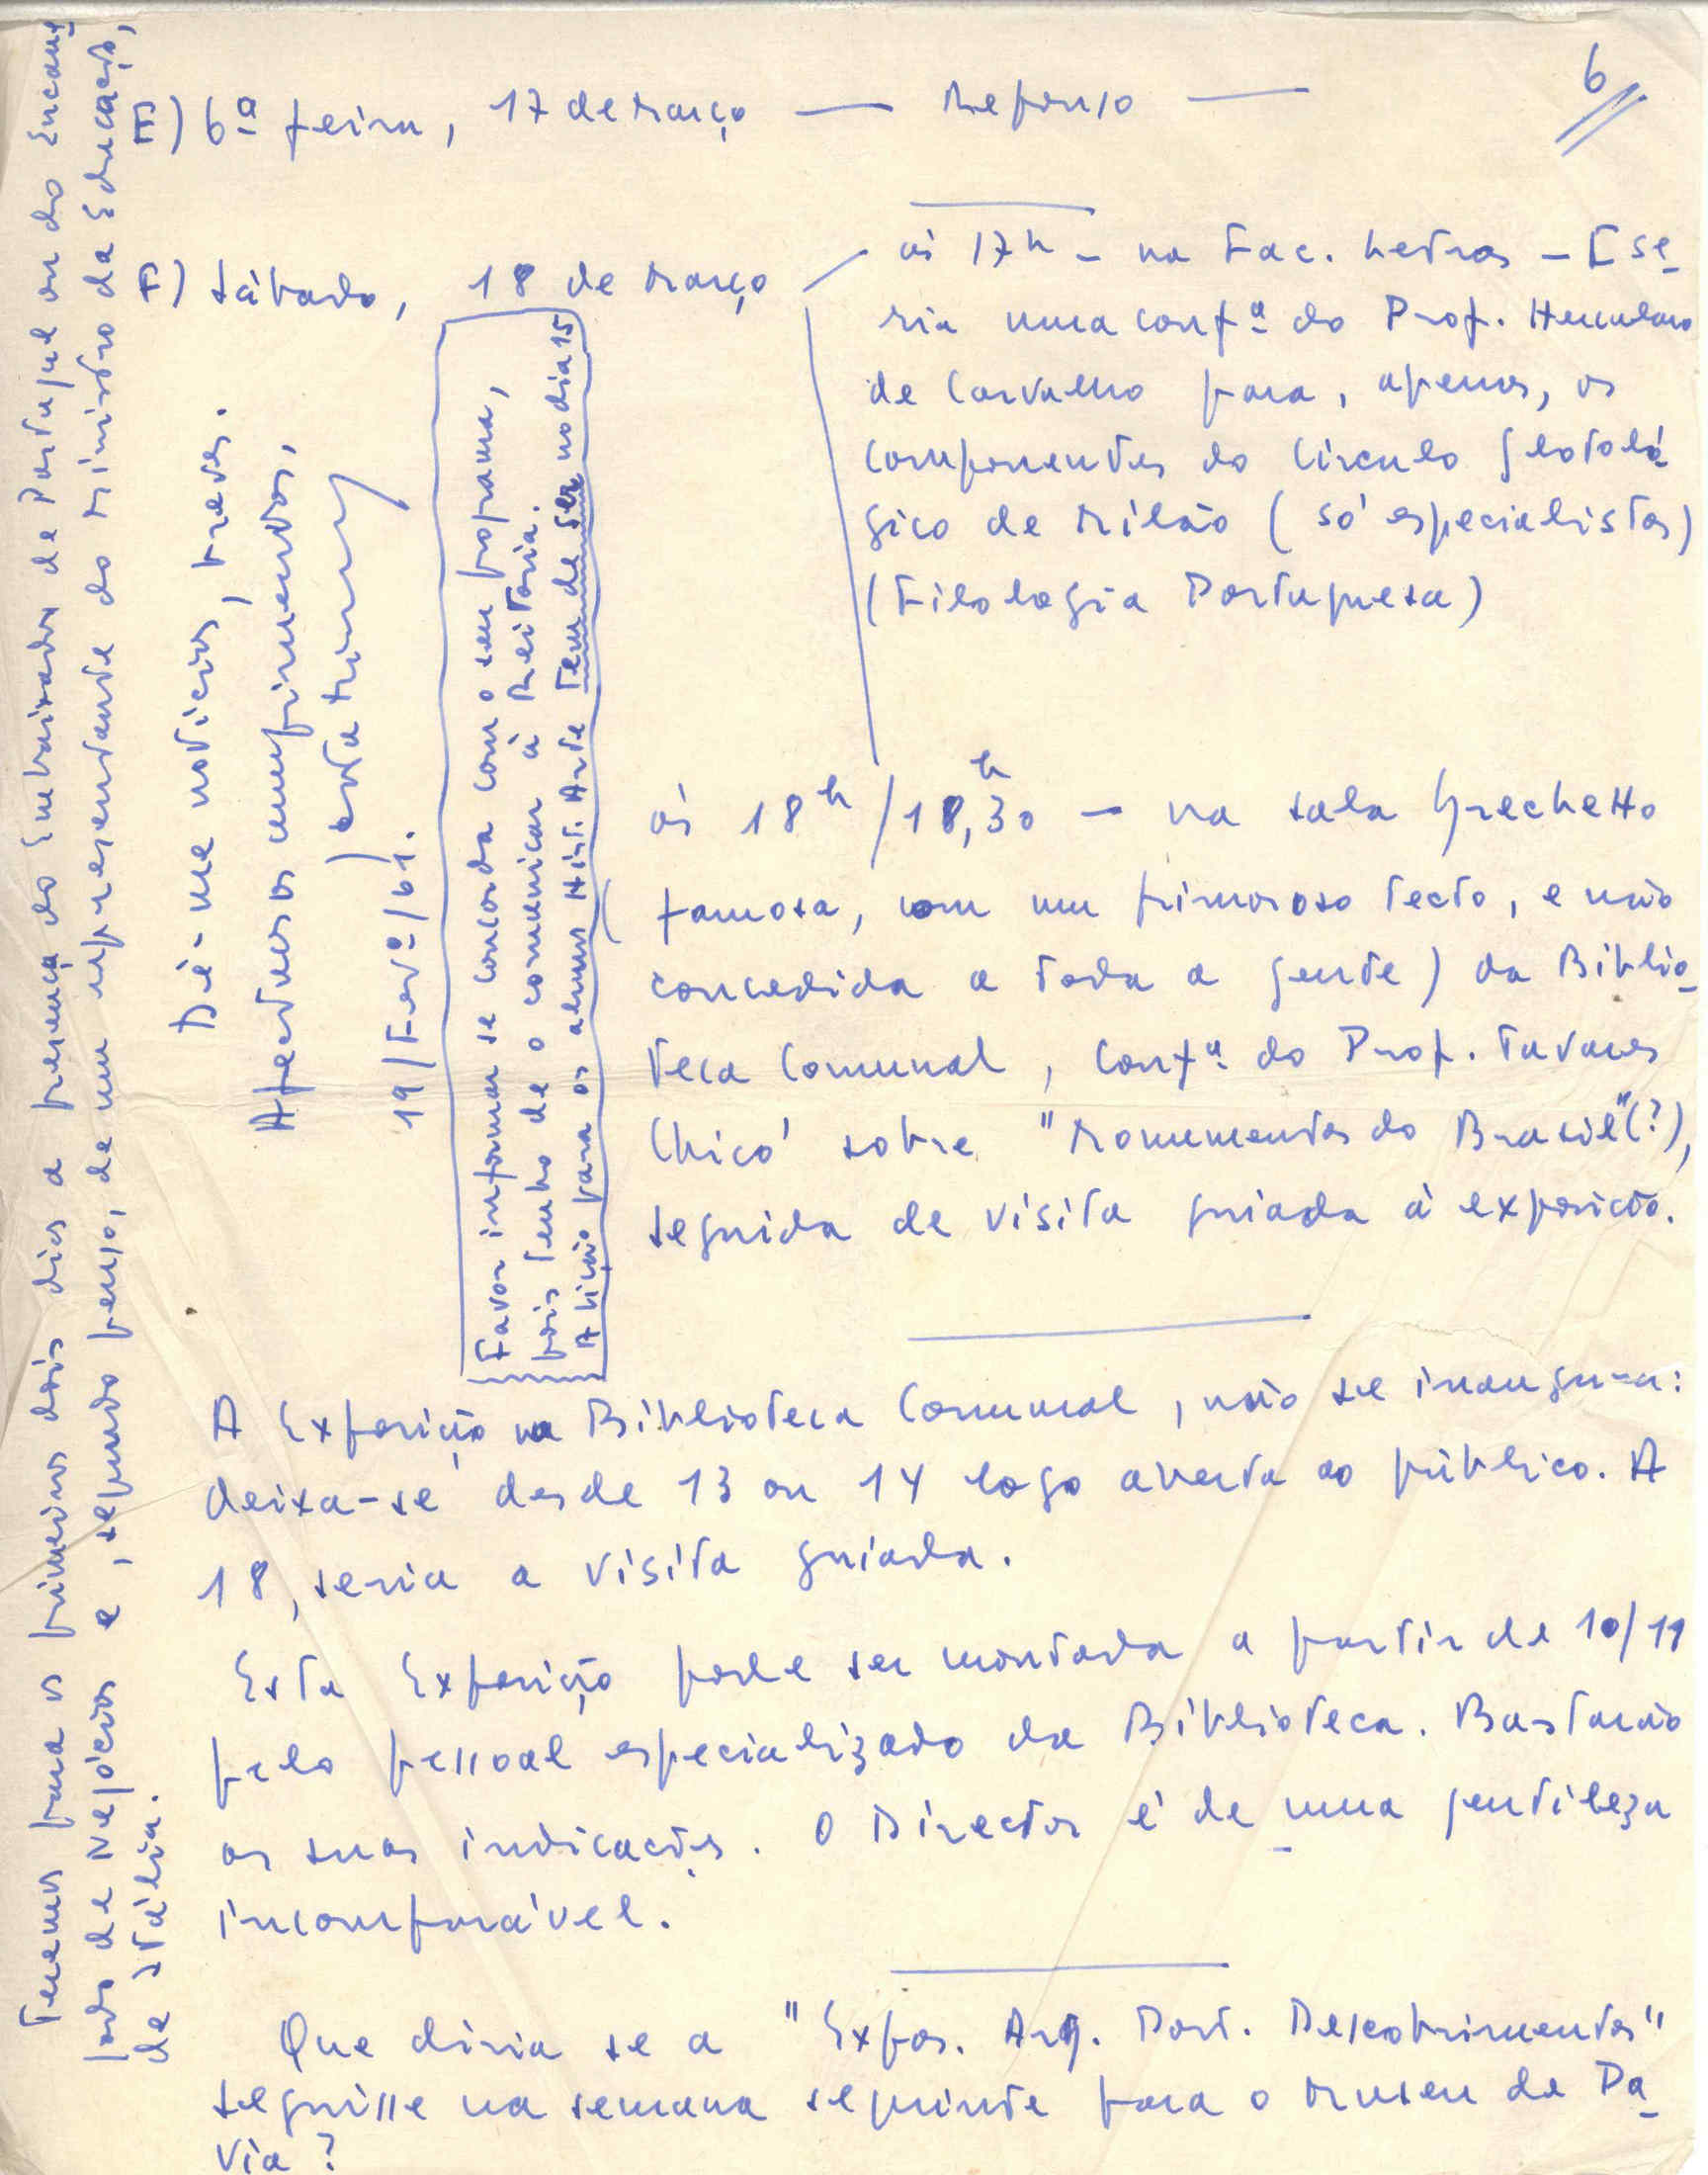 6
E) 6ª feira, 17 de Março — Repouso —
F) Sábado, 18 de Março
às 17h - na Fac. Letras - E se-
ria uma confª do Prof. Herculano
de Carvalho para, apenas, os
componentes do Círculo glotoló-
gico de Milão (só especialistas)
(Filologia Portuguesa)
às 18h/18,30h - na sala Grechetto
(famosa, com um primoroso tecto, e não
concedida a toda a gente) da Biblio-
teca Comunal, confª do Prof. Tavares
Chicó sobre "Monumentos do Brasil"(?),
seguida de visita guiada à exposição.
A Exposição na Biblioteca Comunal, não se inaugura:
deixa-se desde 13 ou 14 logo aberta ao público. A
18, seria a visita guiada.
Esta Exposição pode ser montada a partir de 10/11
pelo pessoal especializado da Biblioteca. Bastarão
as suas indicações. O Director é de uma gentileza
incomparável.
Que diria se a "Expos. Arq. Port. Descobrimentos"
seguisse na semana seguinte para o Museu de Pa-
via?
Favor informar se concorda com o seu programa,
pois tenho de o comunicar à Reitoria.
A lição para os alunos Hist. Arte tem de ser no dia 15
Teremos para os primeiros dois dias a presença do Embaixador de Portugal ou do Encarre-
gado de Negócios e, segundo penso, de um representante do Ministro da Educação,
de Itália.
Dê-me notícias, breves.
Afectuosos cumprimentos,
19/Fevº/61.